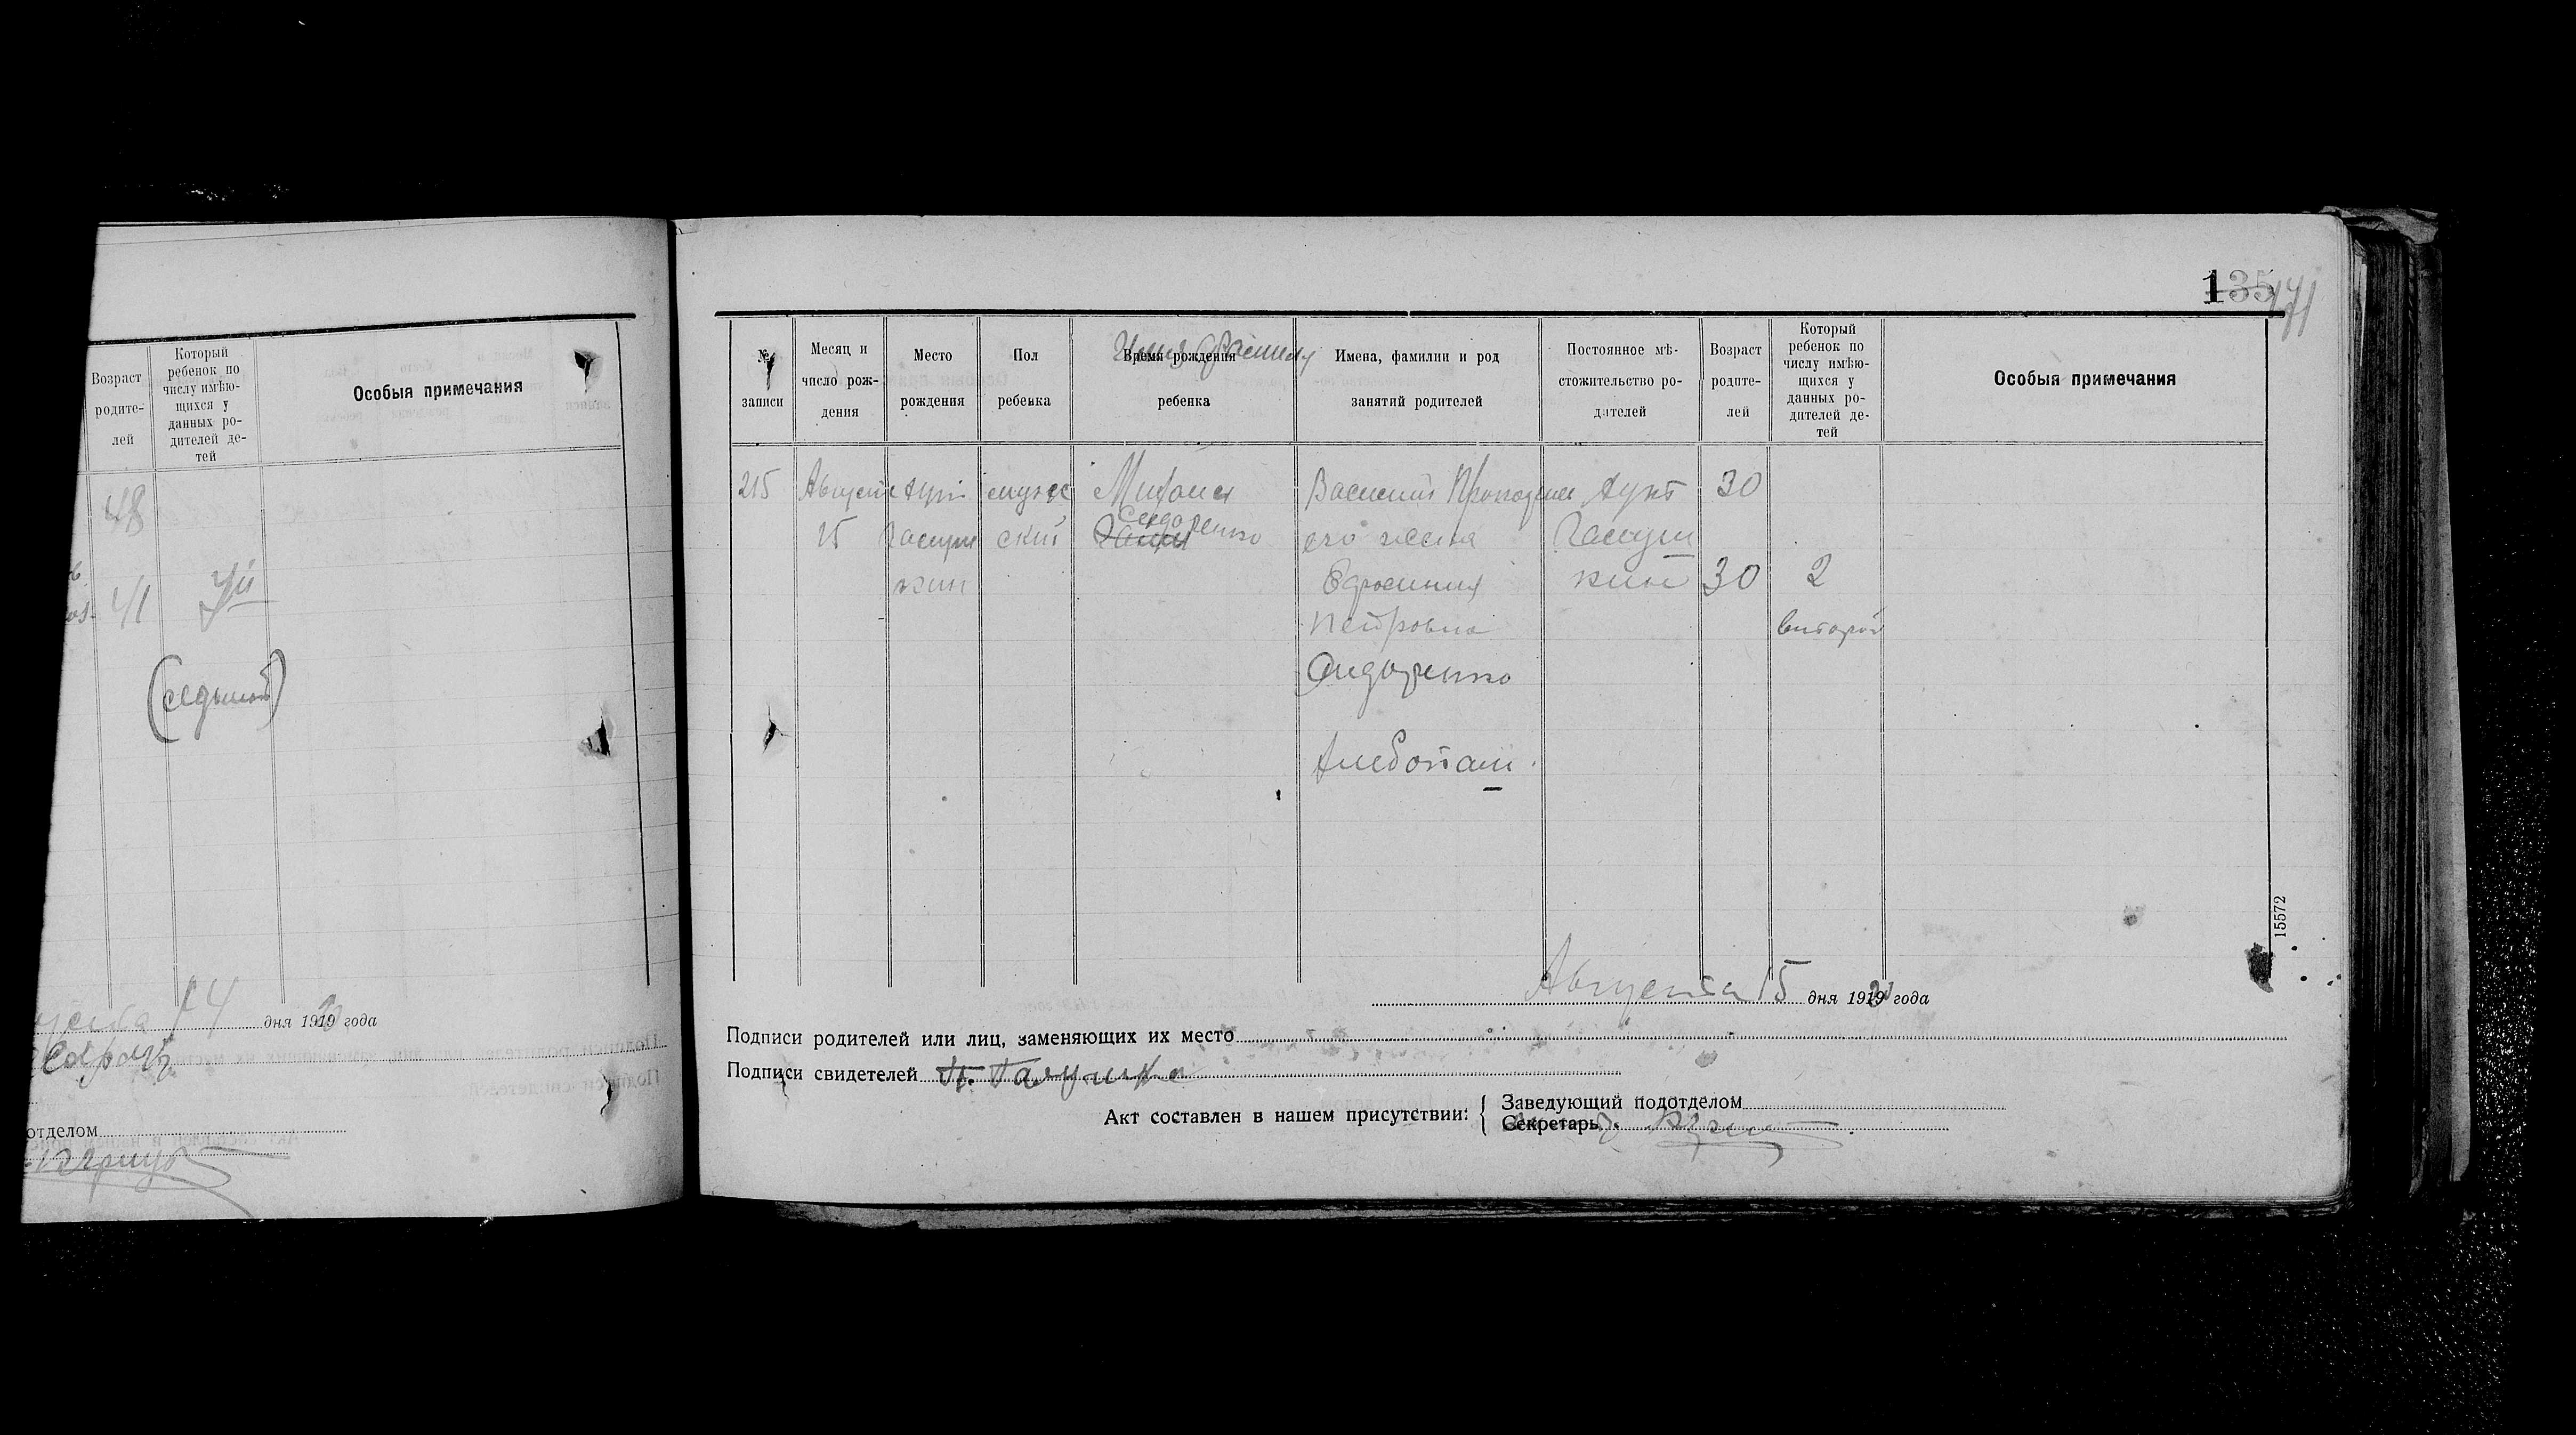 Возраст
родите-
лей
Который
ребенок по
числу имѣю-
щихся у
данных ро-
дителей де-
тей
Особыя примечания
48
41
7й
(седьмой)
14 дня 1919 года
отделом
135
171
№
записи
Месяц и
число рож-
дения
Место
рождения
Пол
ребенка
Имя фамилия
Время рождения
ребенка
Имена, фамилии и род
занятий родителей
Постоянное мѣ-
стожительство ро-
дителей
Возраст
родите-
лей
Который
ребенок по
числу имѣю-
щихся у
данных ро-
дителей де-
тей
Особыя примечания
215 Август мужс Михаил Василий 30
15 ский Сидоренко его жена
Ефросиния 30 2
Петровна второй
Сидоренко
Хлебопаш.
15572
Августа 15 дня 1919 года
Подписи родителей или лиц, заменяющих их место
Подписи свидетелей П. Галушка
Акт составлен в нашем присутствии: Заведующий подотделом
Секретарь